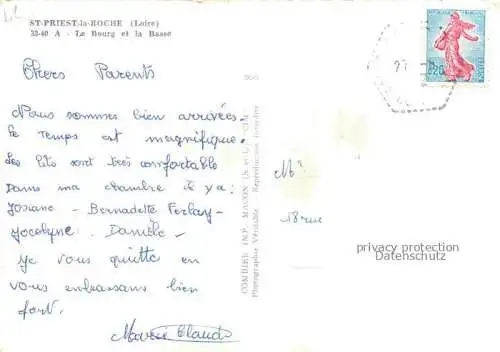 ST-PRIEST-la-ROCHE (Loire)
32-40 A - Le Bourg et la Basse
Chers Parents
Nous sommes bien arrivées.
le temps est magnifique.
les lits sont très comfortable
Dans ma chambre il y a :
Josiane - Bernadette Ferlay -
Jocelyne. Danièle -
je vous quitte en
vous embrassans bien
fort.
Marie Claude
COMBIER IMP. MACON (S.-et-L.) "CIM"
Photographie Véritable - Reproduction interdite
27
0,20
Mr
18 rue
privacy protection
Datenschutz